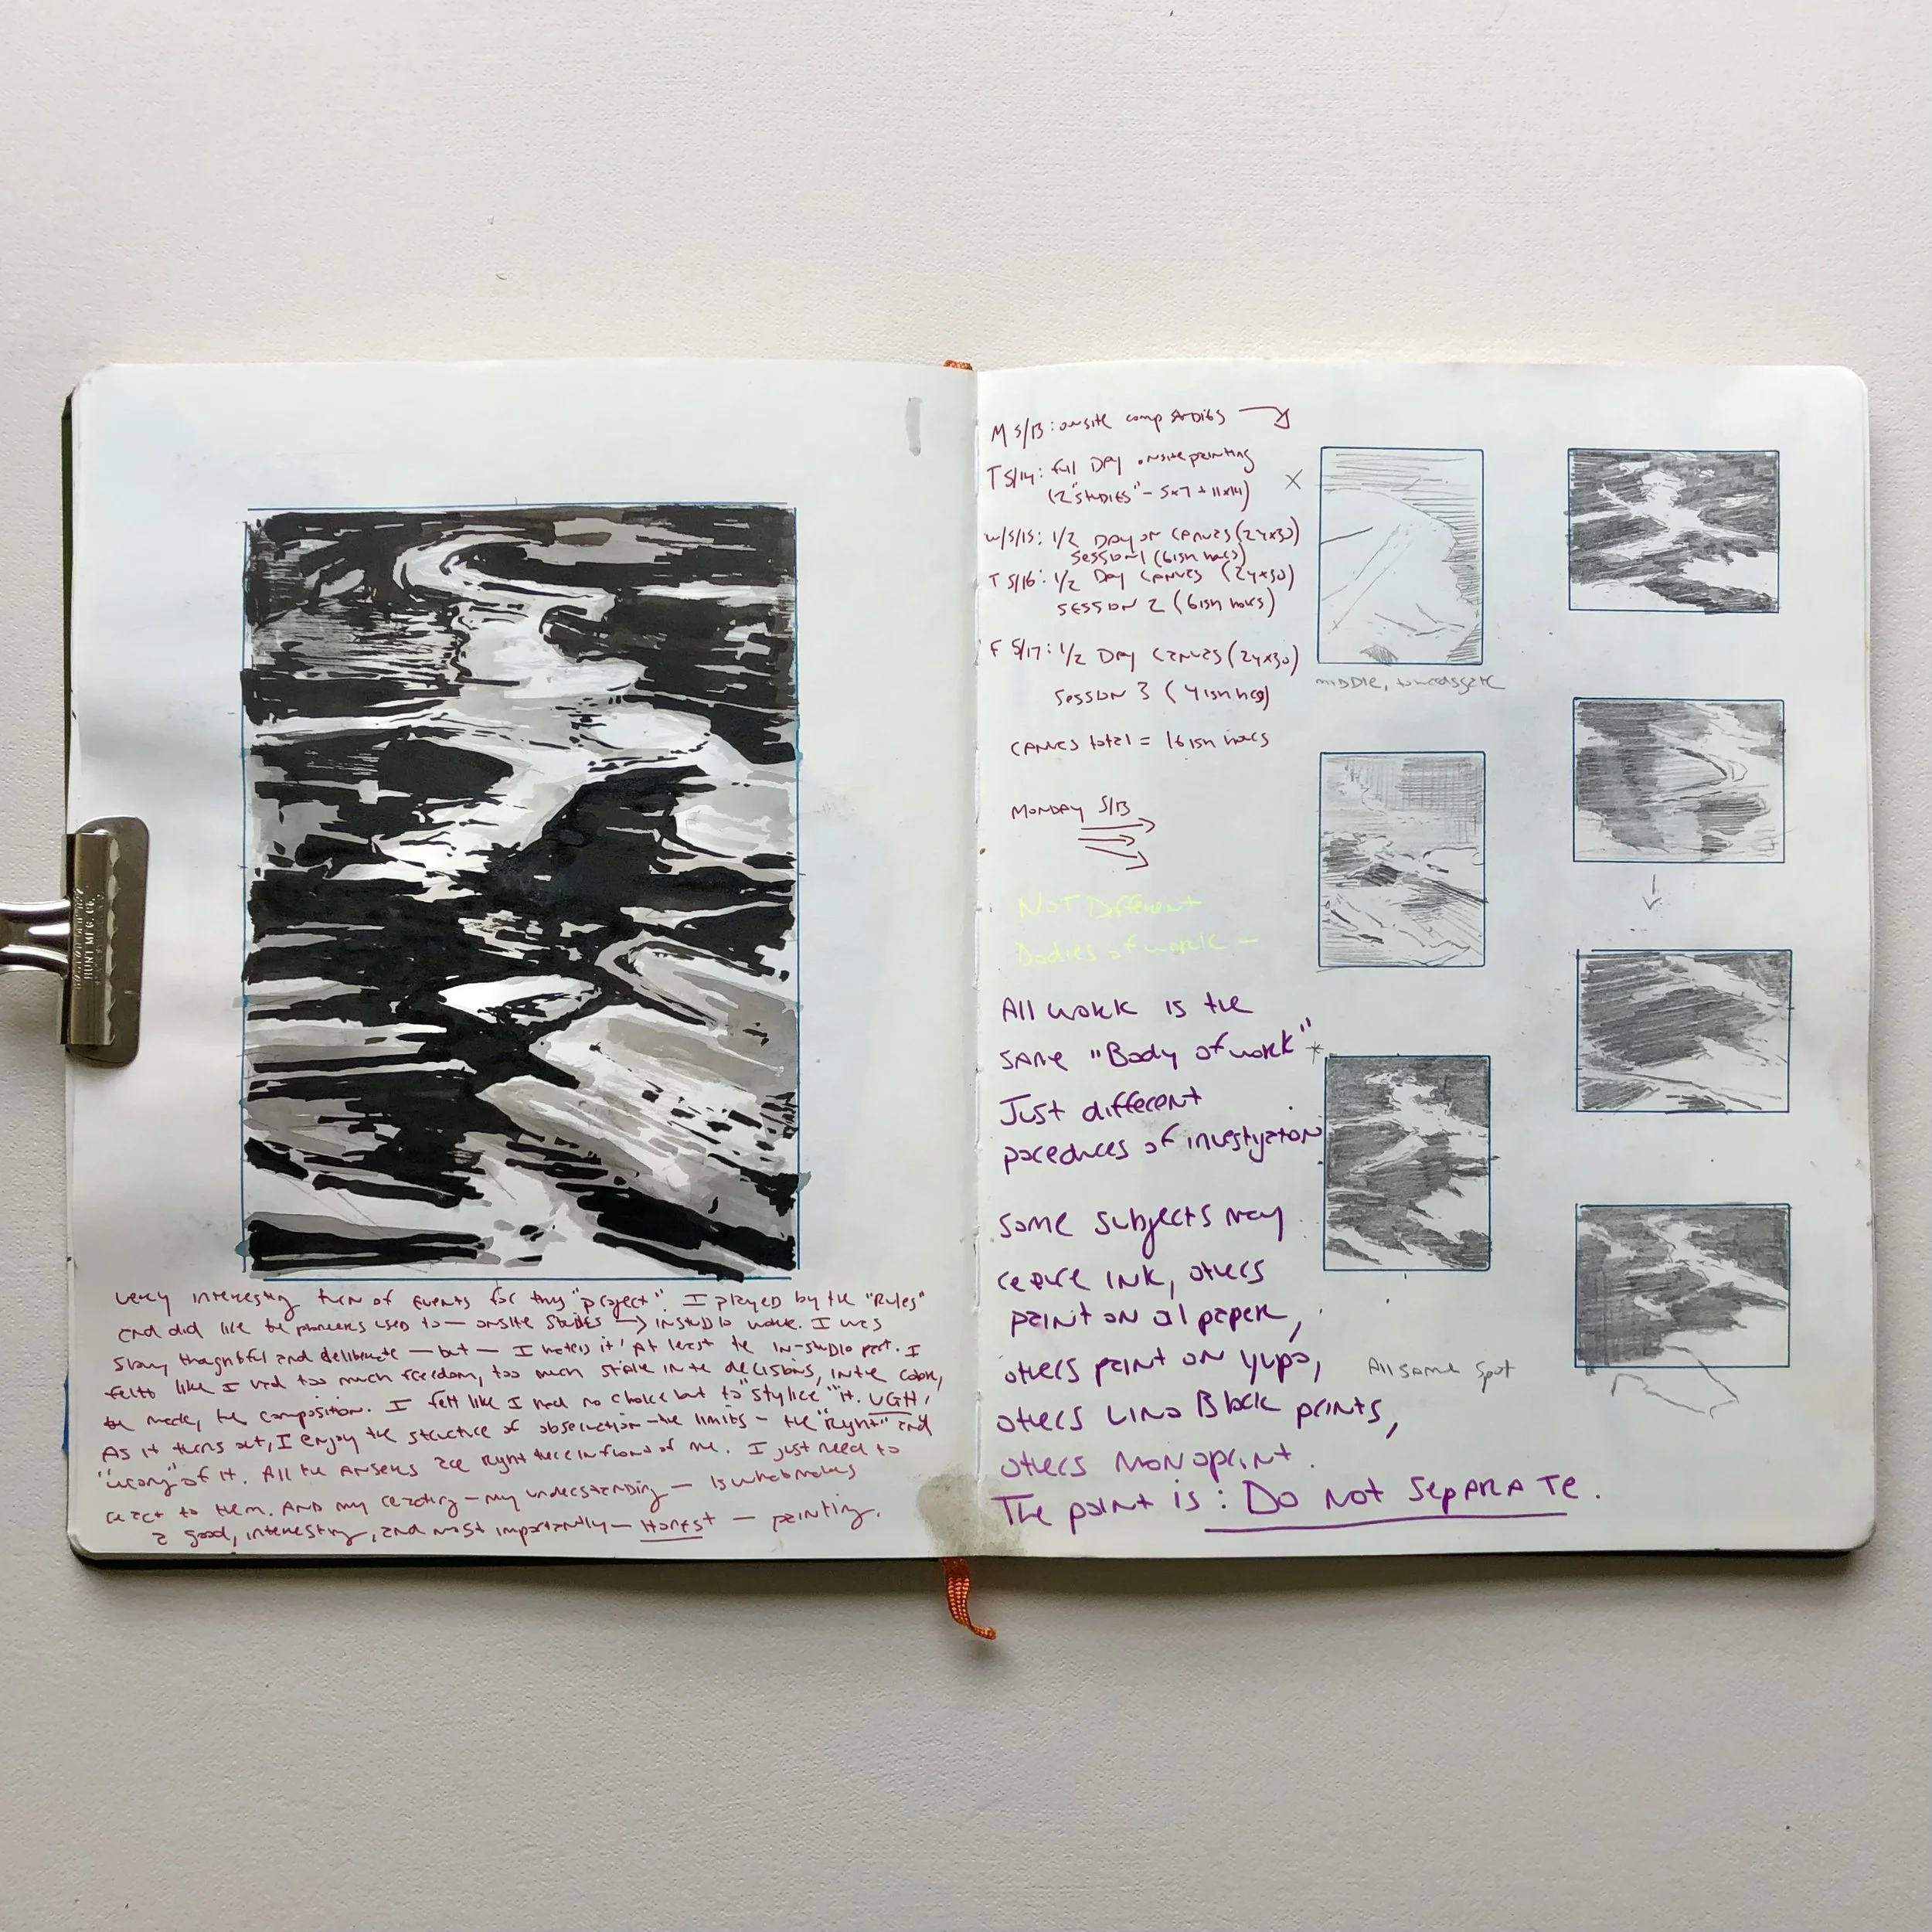 very interesting turn of events for this "project". I played by the "Rules"
and did like the pioneers used to — onsite studies → instudio work. I was
slow, thoughtful and deliberate — but — I hated it! At least the in-studio part. I
felt like I had too much freedom, too much in the decisions, in the color,
the mark, the composition. I felt like I had no choice but to "stylize" it. UGH!
As it turns out, I enjoy the structure of observation — the limits — the "Right" and
"wrong" of it. All the answers are right there in front of me. I just need to
react to them. AND my reaction — my understanding — is what makes
a good, interesting, and most importantly — Honest — painting.
M 5/13: onsite comp studies
T 5/14: full DAY onsite painting
(2 "studies" - 5x7 + 11x14)
W/5/15: 1/2 DAY on CANVAS (24x30)
SESSION 1 (6ish hours)
T 5/16: 1/2 Day CANVAS (24x30)
SESSION 2 (6ish hours)
F 5/17: 1/2 Day CANVAS (24x30)
SESSION 3 (4ish hrs)
CANVAS total = 16ish hours
MONDAY 5/13
X
middle, towards gate
NOT Different
Bodies of work —
All work is the
SAME "Body of work"
Just different
procedures of investigation
Some subjects may
require INK, others
paint on oil paper,
others paint on yupo,
others Lino Block prints,
others Monoprint.
The point is: Do Not SepARATe.
All same spot
HUNT MFG. CO.